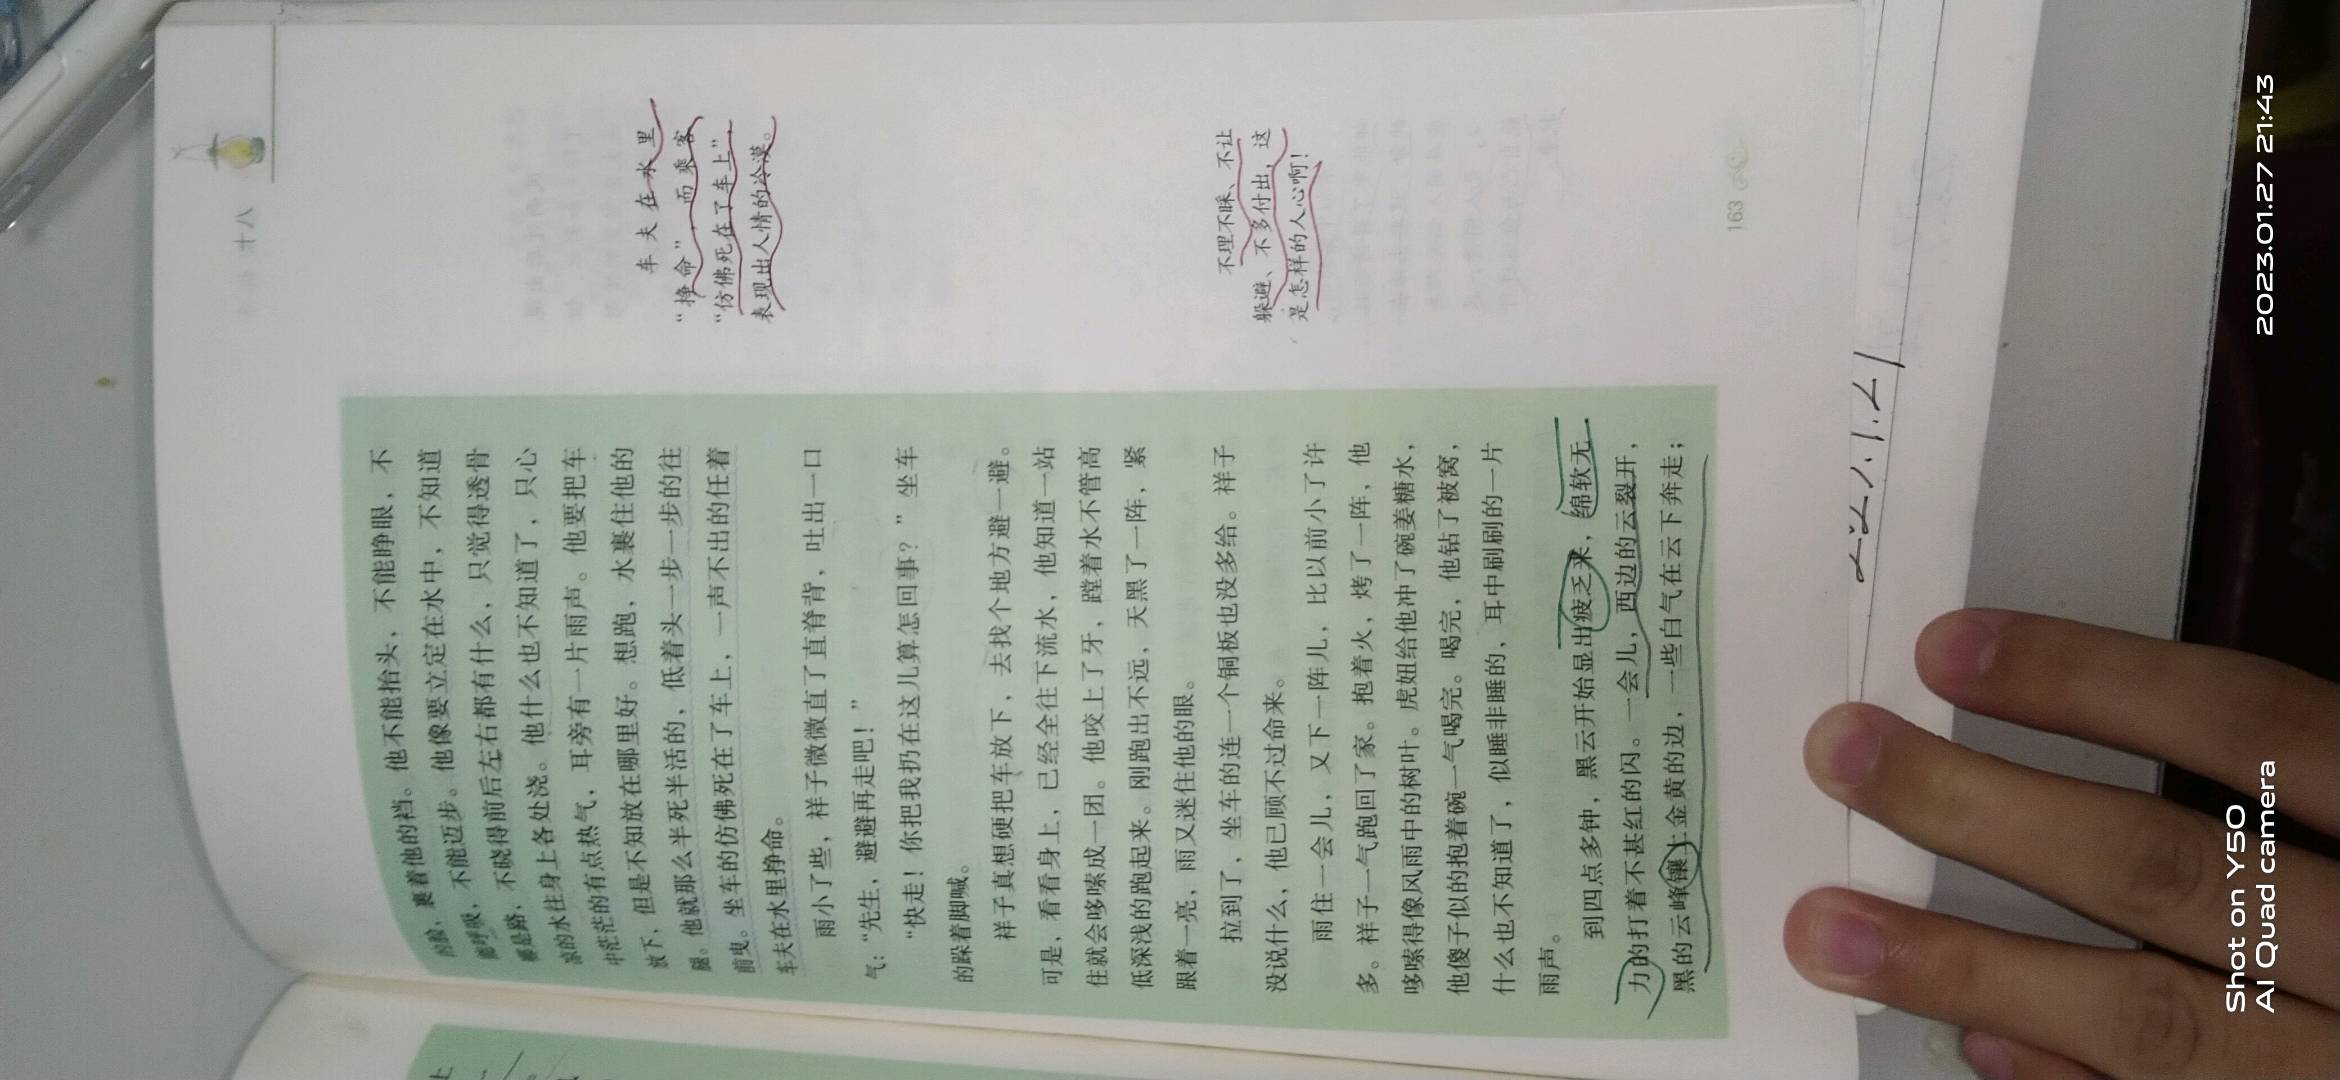 十八
的脸，裹着他的裆。他不能抬头，不能睁眼，不
能呼吸，不能迈步。他像要立定在水中，不知道
哪是路，不晓得前后左右都有什么，只觉得透骨
凉的水往身上各处浇。他什么也不知道了，只心
中茫茫的有点热气，耳旁有一片雨声。他要把车
放下，但是不知放在哪里好。想跑，水裹住他的
腿。他就那么半死半活的，低着头一步一步的往
前曳。坐车的仿佛死在了车上，一声不出的任着
车夫在水里挣命。
雨小了些，祥子微微直了直脊背，吐出一口
气：“先生，避避再走吧！”
“快走！你把我扔在这儿算怎回事？”坐车
的跺着脚喊。
祥子真想硬把车放下，去找个地方避一避。
可是，看看身上，已经全往下流水，他知道一站
住就会哆嗦成一团。他咬上了牙，蹚着水不管高
低深浅的跑起来。刚跑出不远，天黑了一阵，紧
跟着一亮，雨又迷住他的眼。
拉到了，坐车的连一个铜板也没多给。祥子
没说什么，他已顾不过命来。
雨住一会儿，又下一阵儿，比以前小了许
多。祥子一气跑回了家。抱着火，烤了一阵，他
哆嗦得像风雨中的树叶。虎妞给他冲了碗姜糖水，
他傻子似的抱着碗一气喝完。喝完，他钻了被窝，
什么也不知道了，似睡非睡的，耳中刷刷的一片
雨声。
到四点多钟，黑云开始显出疲乏来，绵软无
力的打着不甚红的闪。一会儿，西边的云裂开，
黑的云峰镶上金黄的边，一些白气在云下奔走；
车夫在水里
“挣命”，而乘客
“仿佛死在了车上”
表现出人情的冷漠。
不理不睬、不让
躲避、不多付出，这
是怎样的人心啊！
163
Shot on Y50
AI Quad camera
2023.01.27 21:43